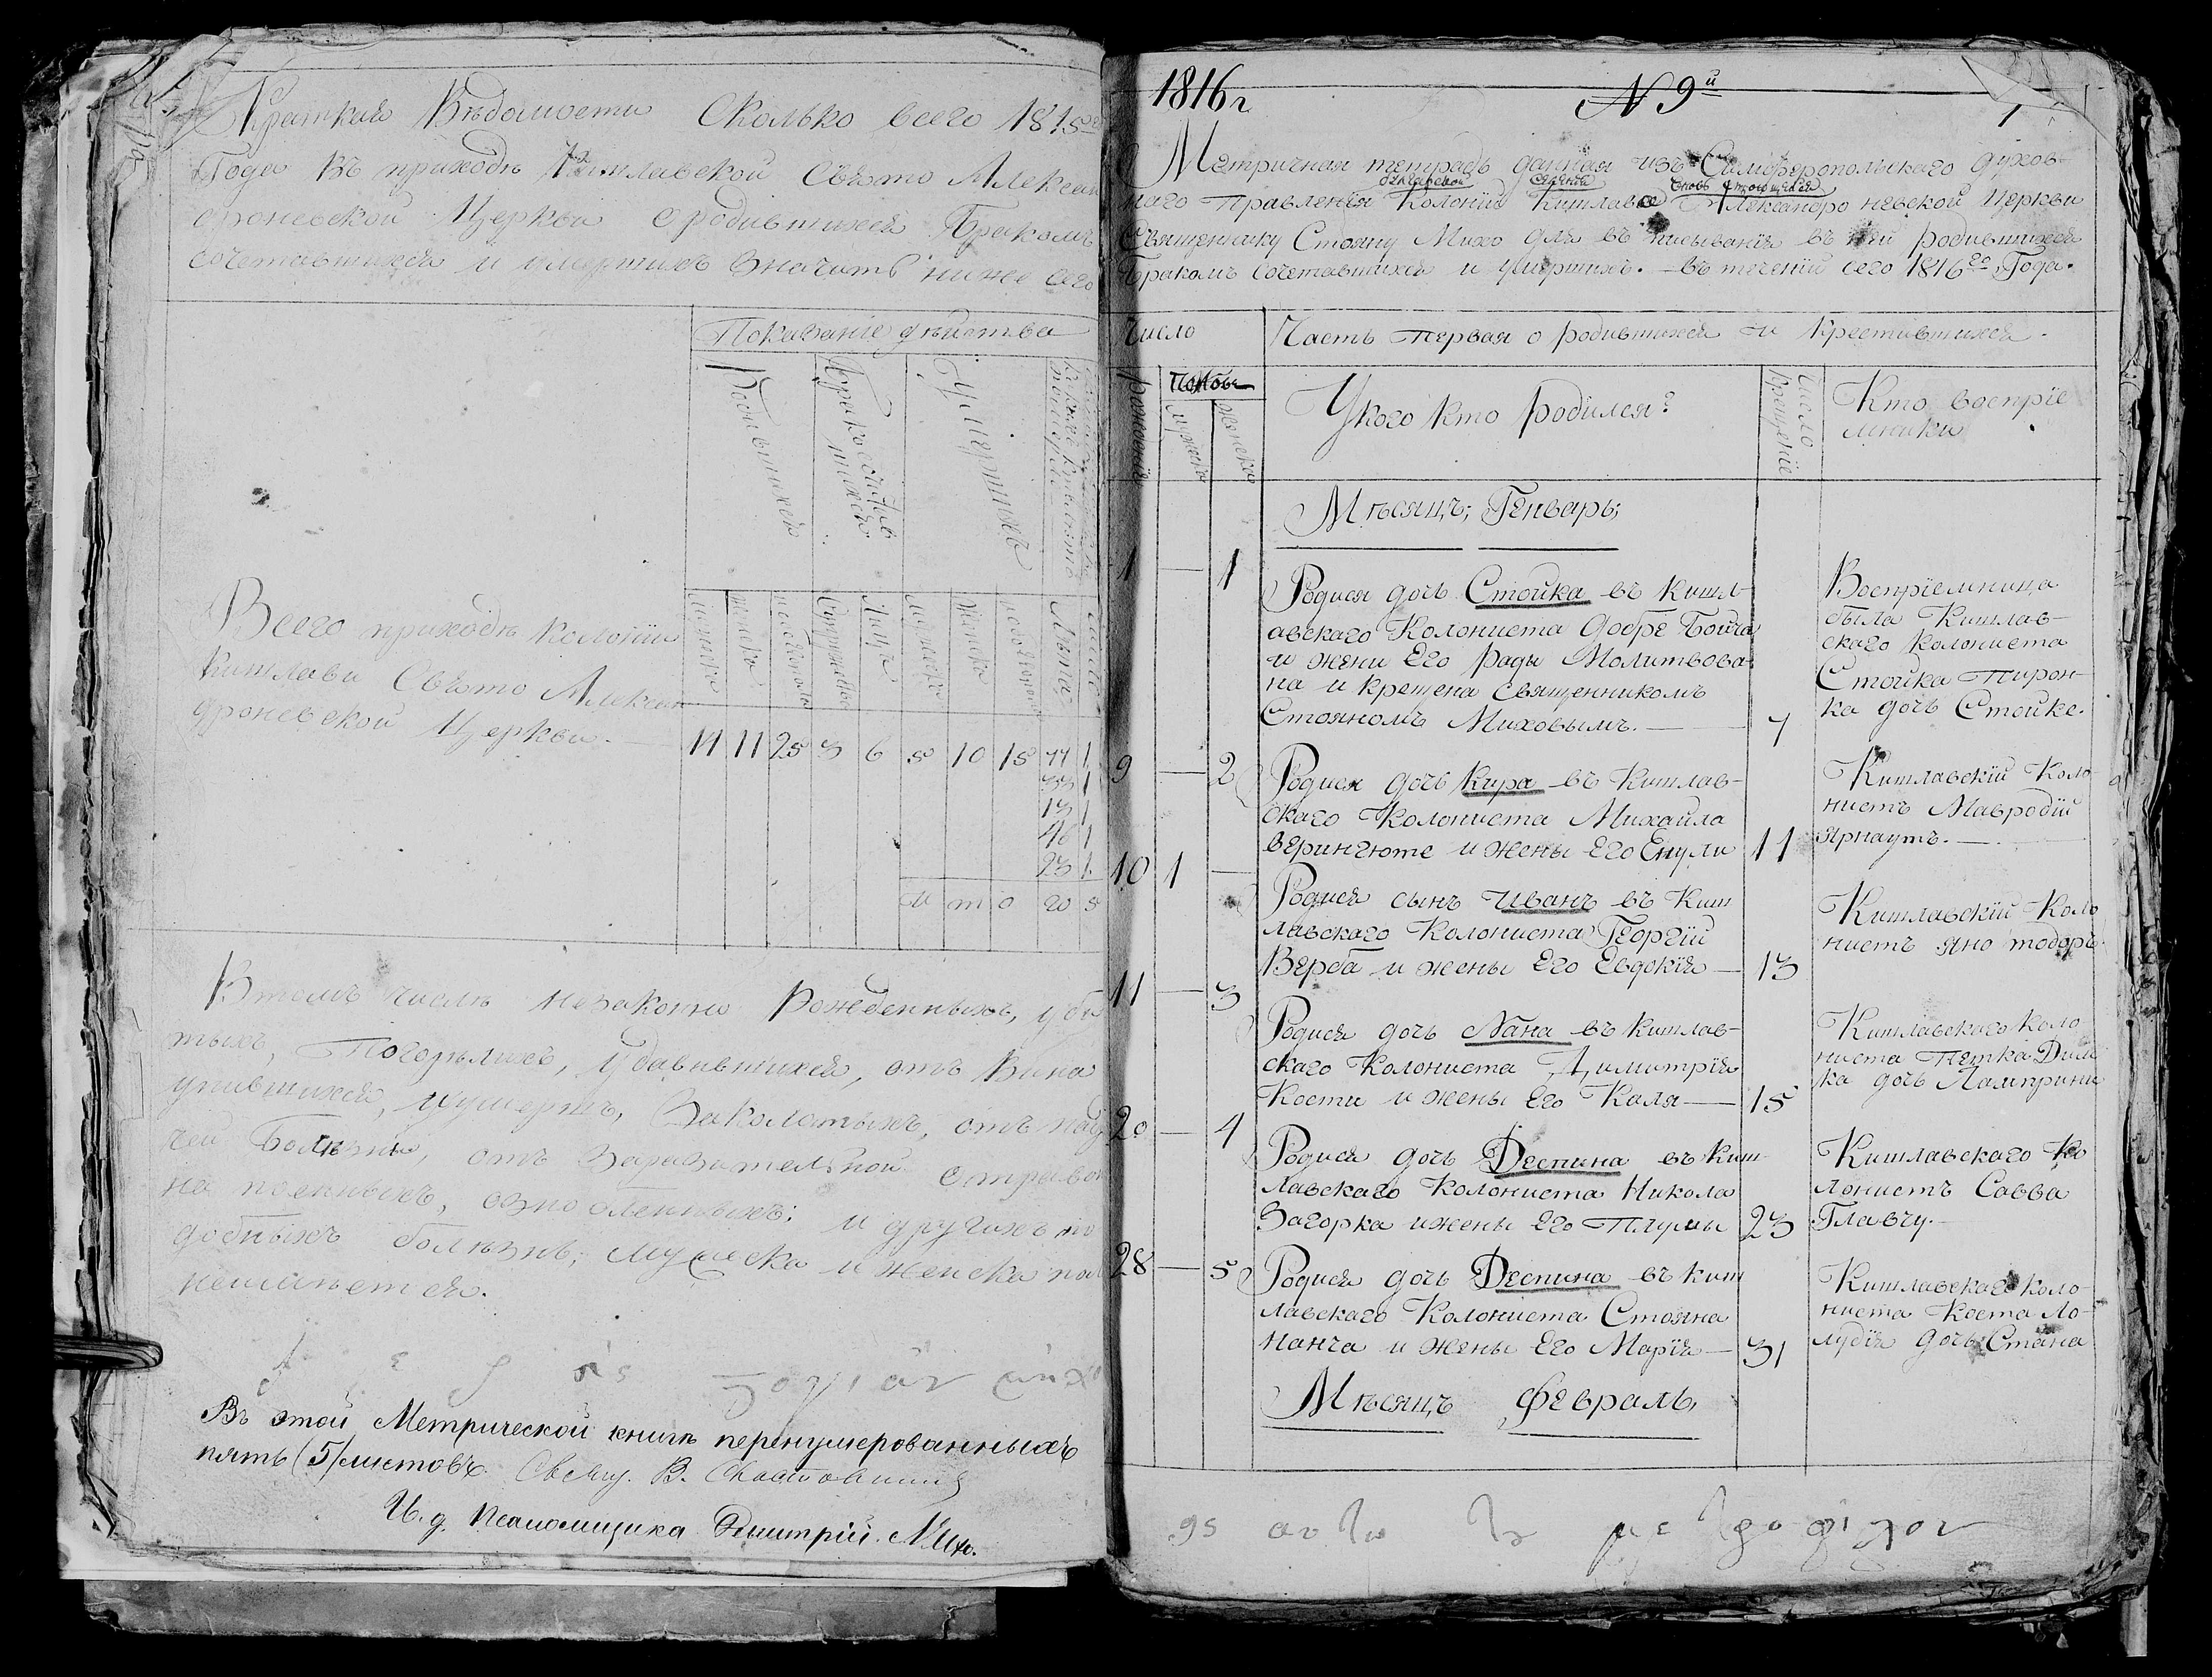 Краткая Вѣдомости Сколько всего 1815го
Года Въ приходѣ Кишлавской Свято Алексан
дроневской Церкви о родившихся Бракомъ
сочетавшихся и умершихъ Значитъ ниже сего
Показание дѣйства
Родившихся
Умершихъ
Всего приходѣ Колонiи
Кишлави Свято Алексан
дроневской Церкви.
14 11 25 3 6 5 10 15 44 1
33 1
13 1
46 1
23 1
И т о 20 5
Втомъ числѣ незаконно Рожденныхъ, уби
тыхъ, Погорѣлихъ, Удавившихся, отъ Вина
упившихся, Заколотыхъ, отъ
чей Болѣзни, отъ Заразительной
и другихъ по
добныхъ болѣзнь; мужеска и женска пол
неимѣется.
Въ этой Метрической книгѣ перенумерованныхъ
пять (5) листовъ. Свящ. В.
И. д. Псаломщика Дмитрiй Михо.
1816г N 9й 1
Метричная тетрадь данная изъ Симферопольскаго духов-
болгарской вновь строющейся
наго Правленiя Колонiи Кишлава Александро невской Церкви
Священнику Стояну Михо для въписыванiя въ ней родившихся
Бракомъ сочетавшихся и умершихъ. — въ теченiи сего 1816го Года.
Число Часть Первая о родившихся и крестившихся.
Рожденiя Полов Мужска Женска Укого кто родился? Число Крещенiе Кто воспрiе
мники
Мѣсяцъ; Генварь;
1 — 1 Родися дочь Стойка въ Кишл-
авскаго Колониста Добре Бойча
и жени Его Рады Молитвова-
на и крещена Священникомъ
Стояномъ Миховымъ. — 7
Воспрiемница
была Кишлав-
скаго колониста
Стойка Пирон-
ка дочь Стойке.
9 — 2 Родися дочь Кира въ Кишлав-
скаго Колониста Михаила
Верингюте и жены Его Енули 11
Кишлавскiй Коло
нистъ Мавродiй
Ярнаутъ. —
10 1 — Родися сынъ Иванъ въ Киш
лавскаго Колониста Георгiй
Верба и жены Его Евдокiя — 13
Кишлавскiй Коло
нистъ Яно тодоръ
11 — 3 Родися дочь Nана въ Кишлав-
скаго Колониста Димитрiя
Кости и жены Его Каля — 15
Кишлавскаго Коло
ниста Петка Дим
ка дочь Ламприни
20 — 4 Родися дочь Деспина въ Киш-
лавскаго Колониста Никола
Загорка ижены Его Плумы 23
Кишлавскаго Ко
лонистъ Савва
Главчу. —
28 — 5 Родися дочь Деспина въ Киш
лавскаго Колониста Стояна
Нанча и жены Его Марiя — 31
Кишлавскаго Коло-
ниста Коста Ло-
лудiя дочь Стана
Мѣсяцъ Февраль,